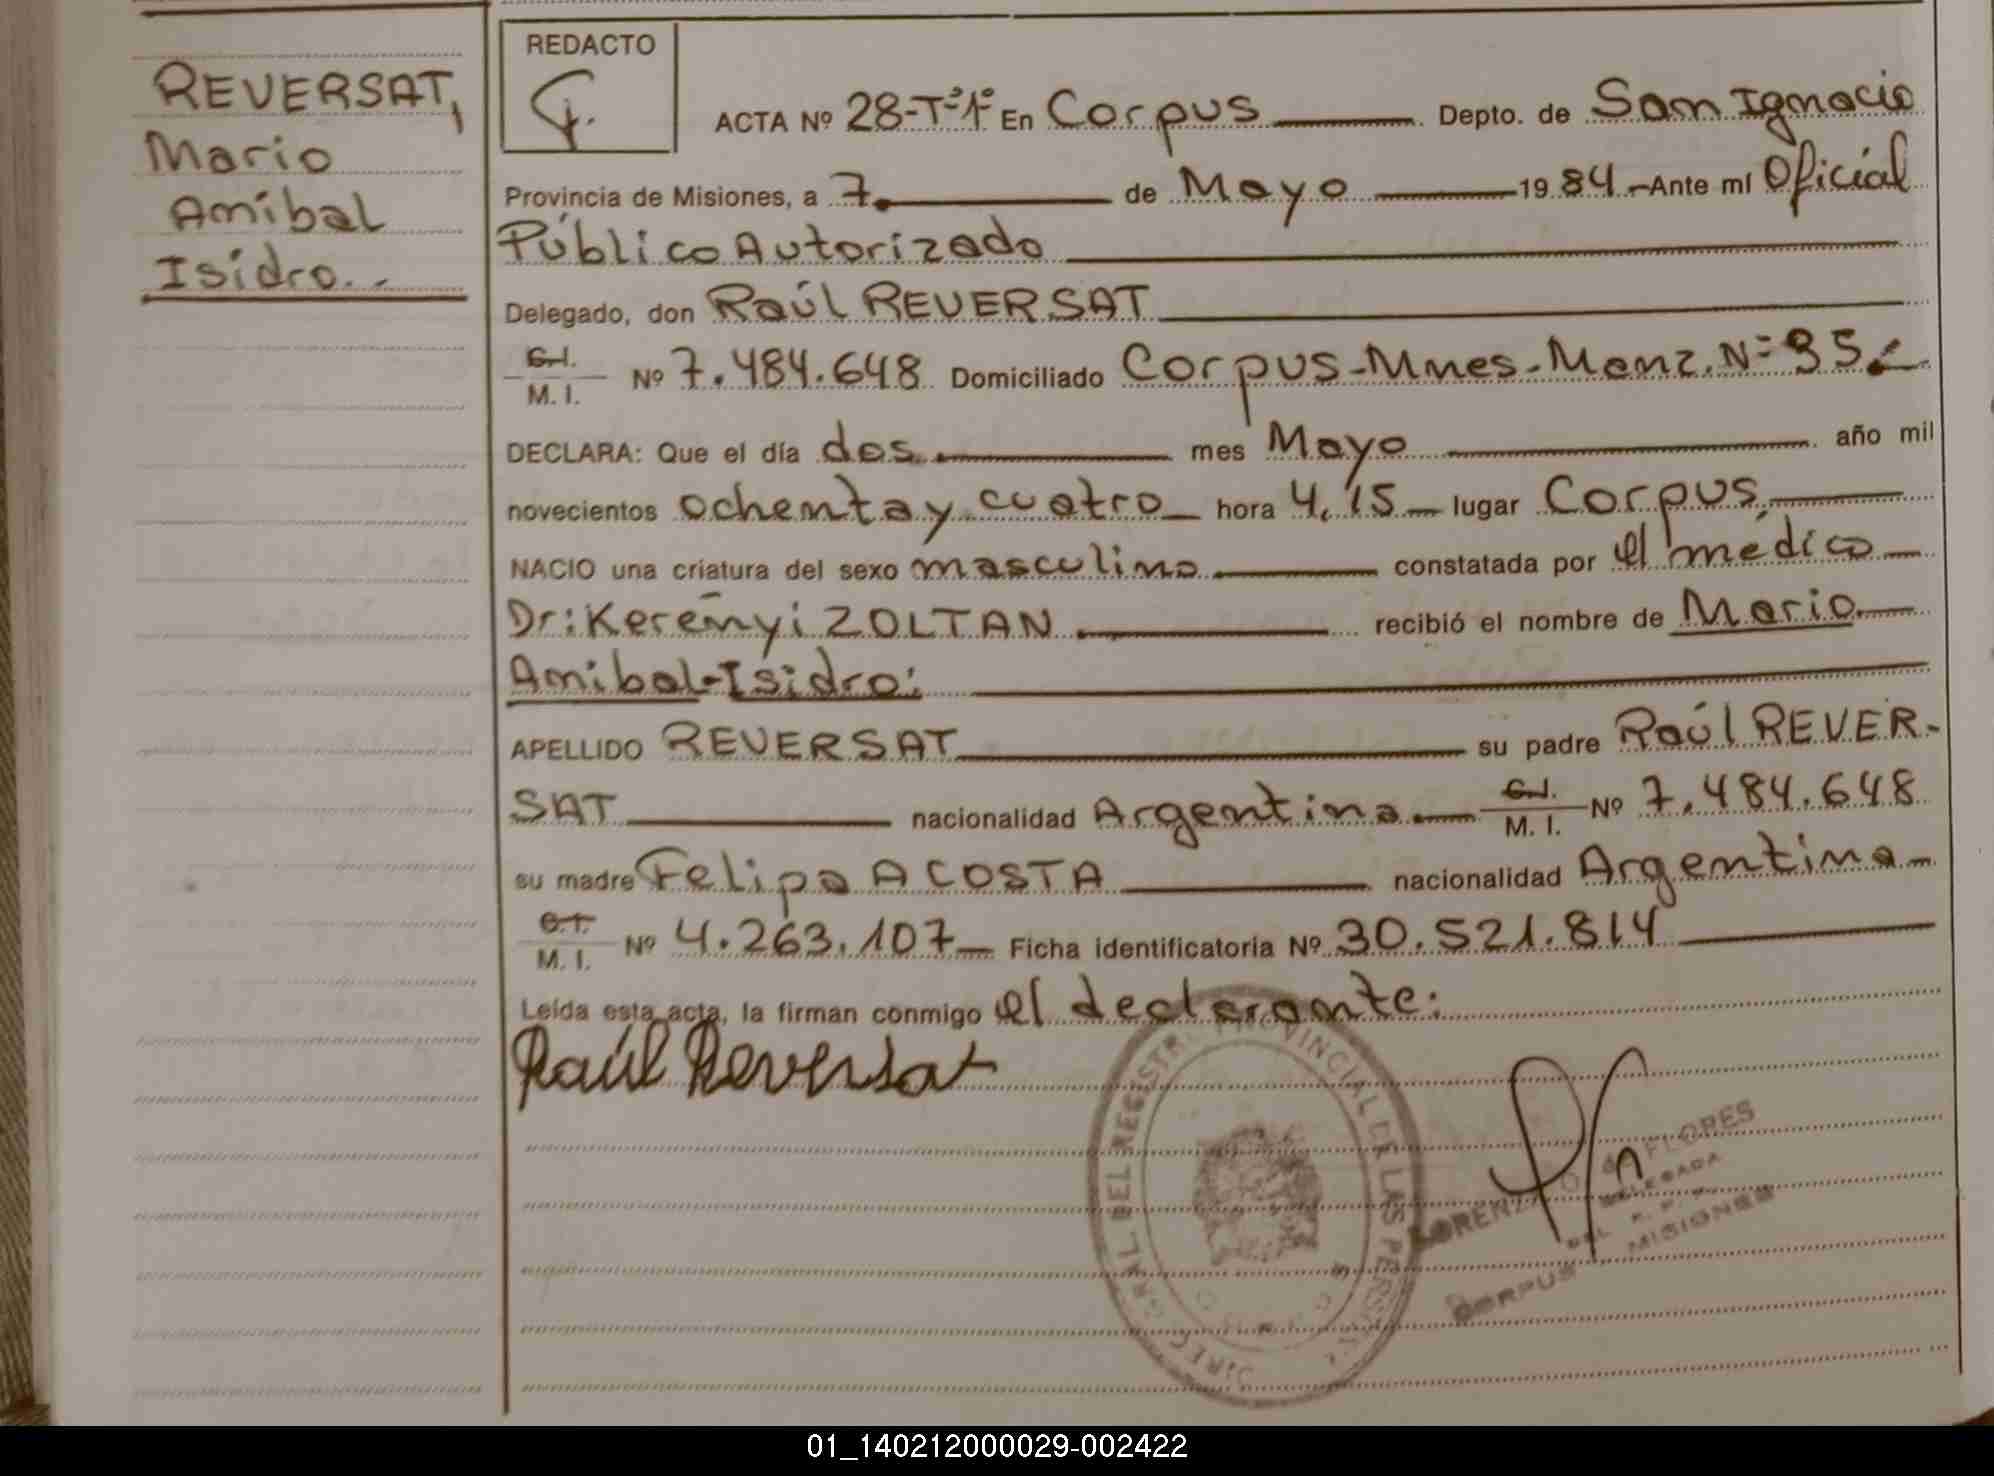 REVERSAT,
Mario
Anibal
Isidro.-
REDACTO
ACTA Nº 28-Tº1º En Corpus Depto. de San Ignacio
Provincia de Misiones, a 7 de Mayo 1984.-Ante mí Oficial
Público Autorizado
Delegado, don Raúl REVERSAT
C.I.
M.I. Nº 7.484.648 Domiciliado Corpus-Mnes-Manz.Nº 35
DECLARA: Que el día dos mes Mayo año mil
novecientos ochenta y cuatro hora 4,15 lugar Corpus,
NACIO una criatura del sexo masculino constatada por el médico
Dr: Kerenyi ZOLTAN recibió el nombre de Mario
Anibal-Isidro:
APELLIDO REVERSAT su padre Raúl REVER-
SAT nacionalidad Argentina C.I.
M.I. Nº 7.484.648
su madre Felipa ACOSTA nacionalidad Argentina
C.I.
M.I. Nº 4.263.107 Ficha identificatoria Nº 30.521.814
Leída esta acta, la firman conmigo el declarante:
Raúl Reversat
DIREC. GRAL. DEL REGISTRO PROVINCIAL DE LAS PERSONAS
FLORES
DELEGADA
DEL R. P. P.
CORPUS MISIONES
01_140212000029-002422